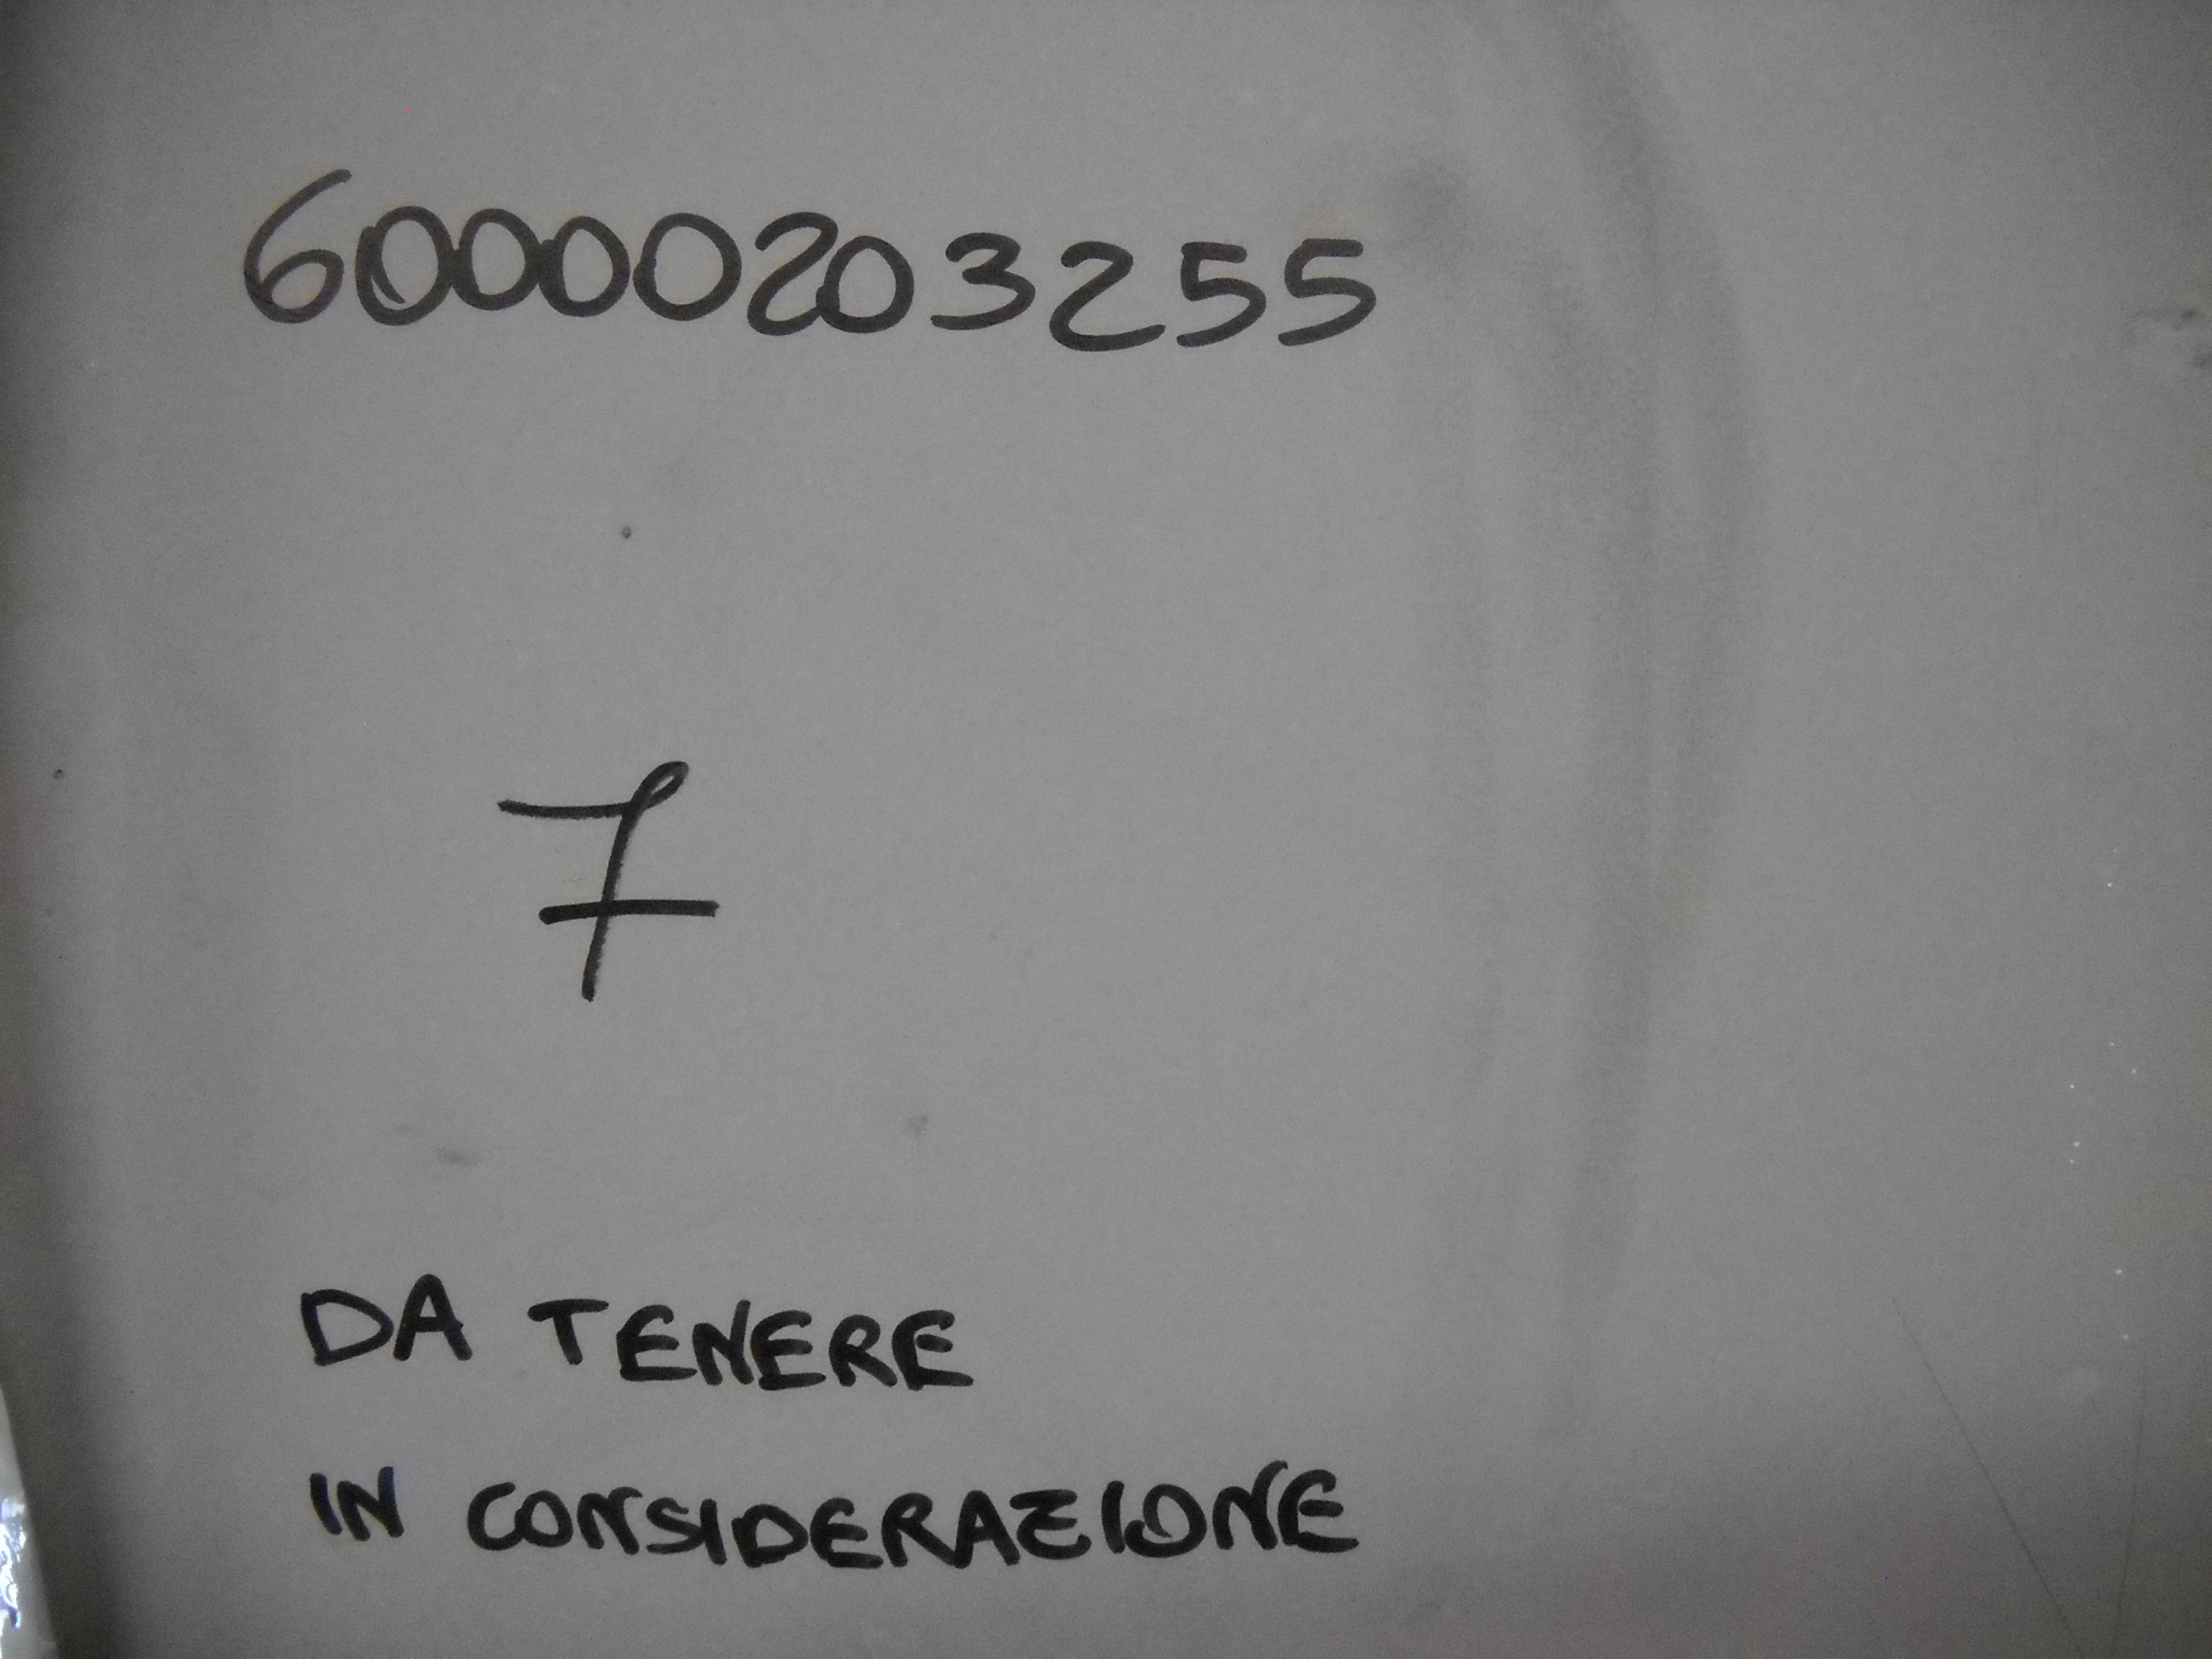 60000203255
7
DA TENERE
IN CONSIDERAZIONE